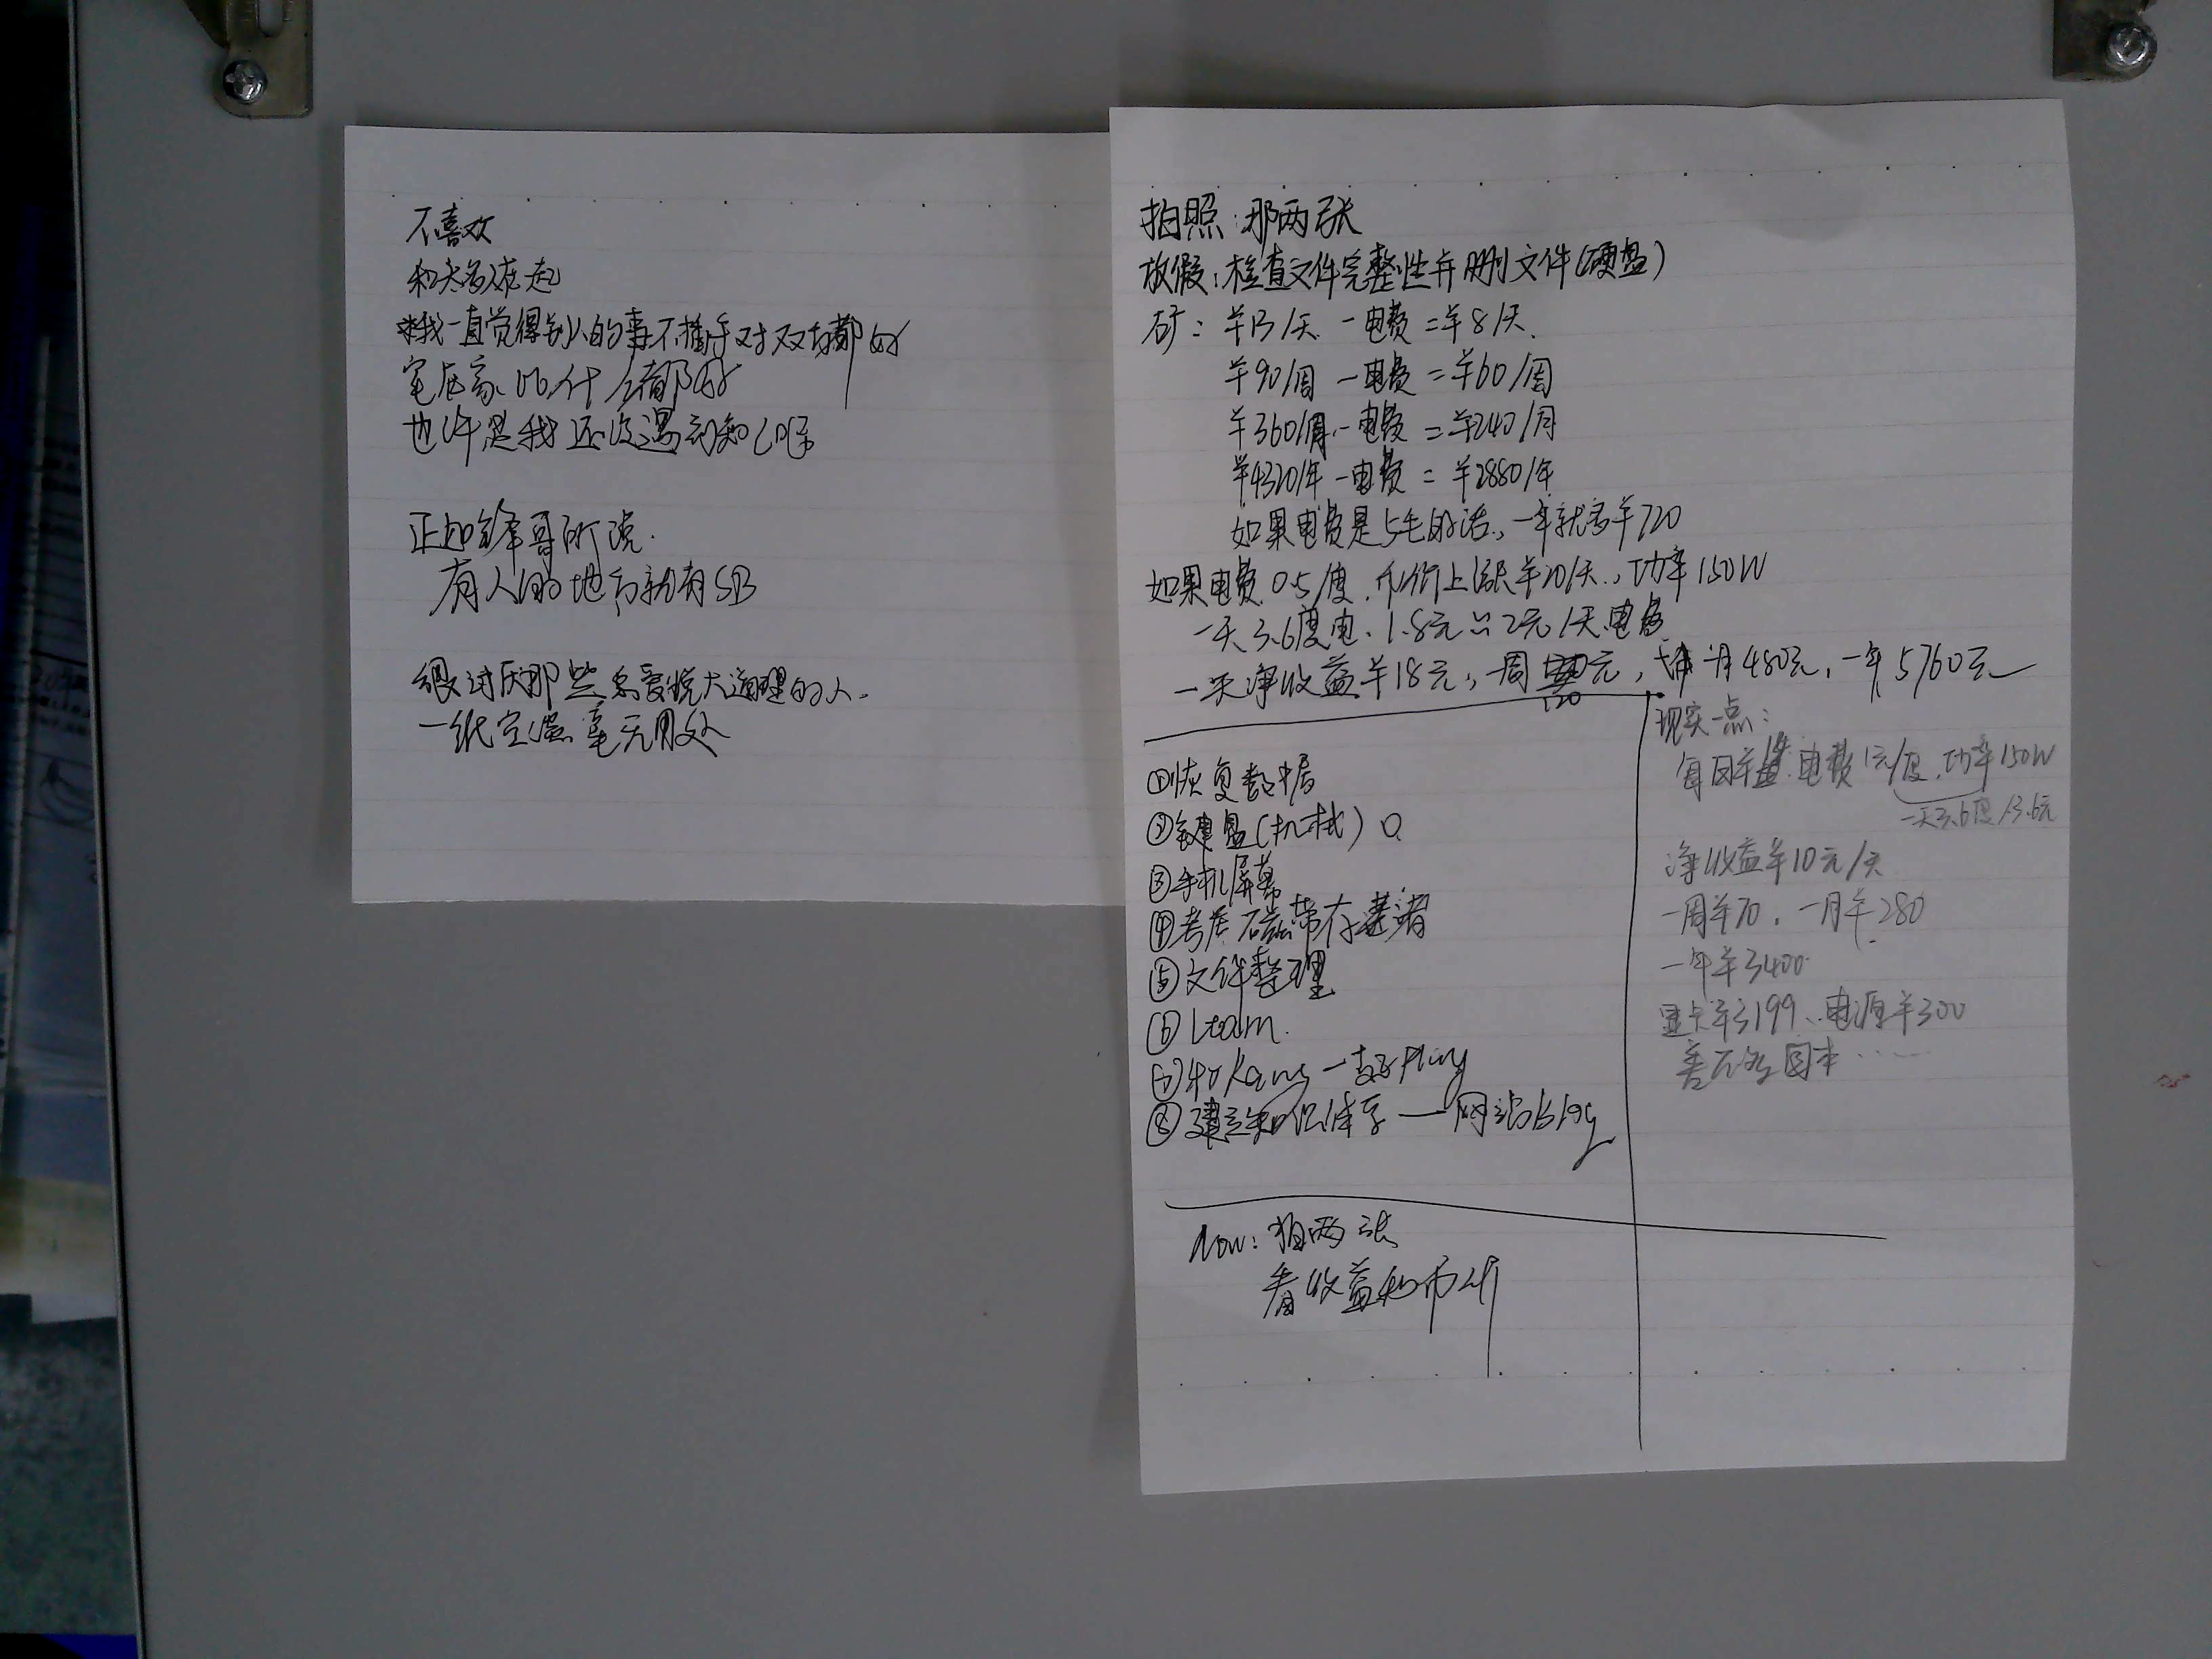 不喜欢
和太多人在一起
我一直觉得别人的事不插手对双方都好
宅在家比什么都好
也许是我还没遇到知己吧
正如锋哥所说.
有人的地方就有SB
很讨厌那些总爱说大道理的人.
一纸空谈 毫无用处
拍照:那两张
放假:检查文件完整性并删文件(硬盘)
矿: ¥13/天 - 电费 = ¥8/天.
¥90/周 - 电费 = ¥60/周
¥360/月 - 电费 = ¥240/月
¥4320/年 - 电费 = ¥2880/年
如果电费是5毛的话,一年就多¥720
如果电费0.5/度,币价上涨¥20/天,功率150W
一天3.6度电,1.8元≌2元/天电费
一天净收益¥18元,一周120元,一月480元,一年5760元
①恢复数据
②键盘(机械)
③手机屏幕
④考虑磁带存储
⑤文件整理
⑥ Learn.
⑦ 和 Kang 一起 Play
⑧建立知识体系 — 网站blog
现实一点:
每日¥ 电费1元/度,功率150W
一天3.6度/3.6元
净收益¥10元/天
一周¥70,一月¥280
一年¥3400
显卡¥3199,电源¥300
差不多回本……
Now: 拍两张
看收益和币价